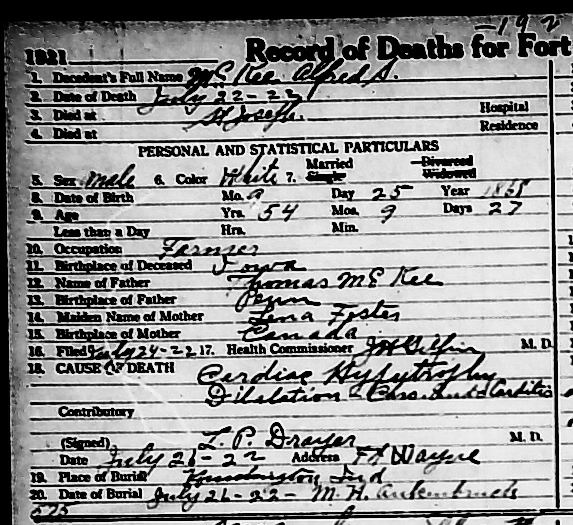 -192
1921 Record of Deaths for Fort
1. Decedent's Full Name McKee Alfred S.
2. Date of Death July 22-22
3. Died at St Joseph. Hospital
4. Died at Residence
PERSONAL AND STATISTICAL PARTICULARS
Married Divorced
5. Sex Male 6. Color White 7. Single Widowed
8. Date of Birth Mo. 9 Day 25 Year 1868
9. Age Yrs. 54 Mos. 9 Days 27
Less than a Day Hrs. Min.
10. Occupation Farmer
11. Birthplace of Deceased Iowa
12. Name of Father Thomas McKee
13. Birthplace of Father Penn
14. Maiden Name of Mother Lena Foster
15. Birthplace of Mother Canada
16. Filed July 24-22 17. Health Commissioner M. D.
18. CAUSE OF DEATH Cardiac Hypytrophy
Dilelation
Contributory
(Signed) L. P. Drayer M. D.
Date July 26-22 Address Ft Wayne
19. Place of Burial Huntington Ind
20. Date of Burial July 26-22- M. H.
575